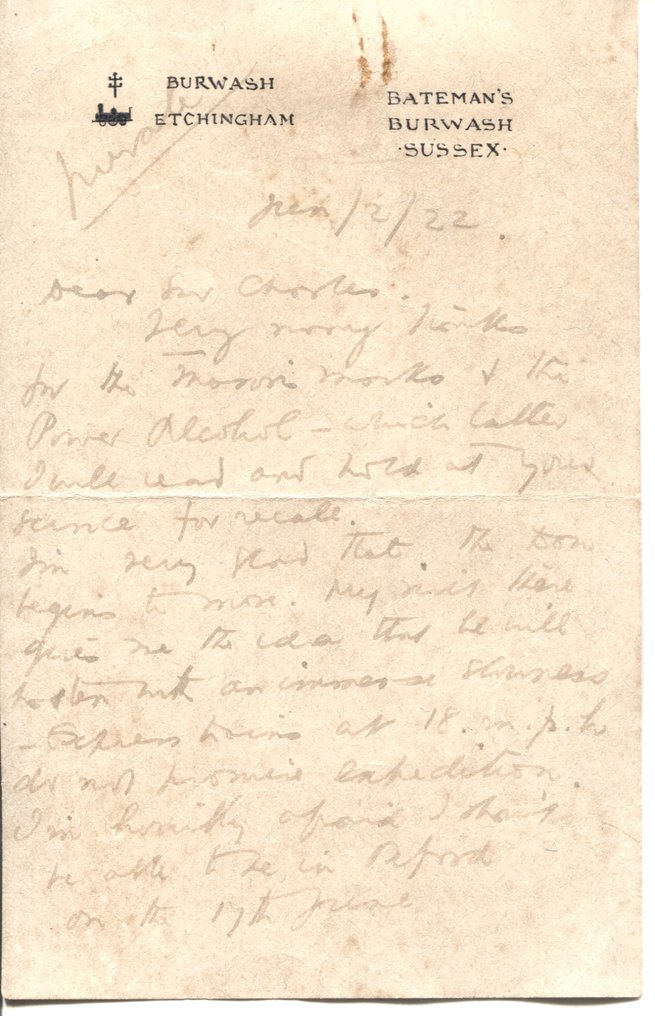 BURWASH
ETCHINGHAM
BATEMAN'S
BURWASH
·SUSSEX·
private
Jun/2/22.
Dear Sir Charles.
Very many thanks
for the Mason's marks & the
Power Alcohol – which latter
I will read and hold at your
service for recall.
I'm very glad that the Don
begins to move. My visit there
gives me the idea that he will
hasten with an immense slowness
– Express trains at 18. m.p.h
do not promise expedition.
I'm horribly afraid I shan't
be able to be in Oxford
on the 17th June